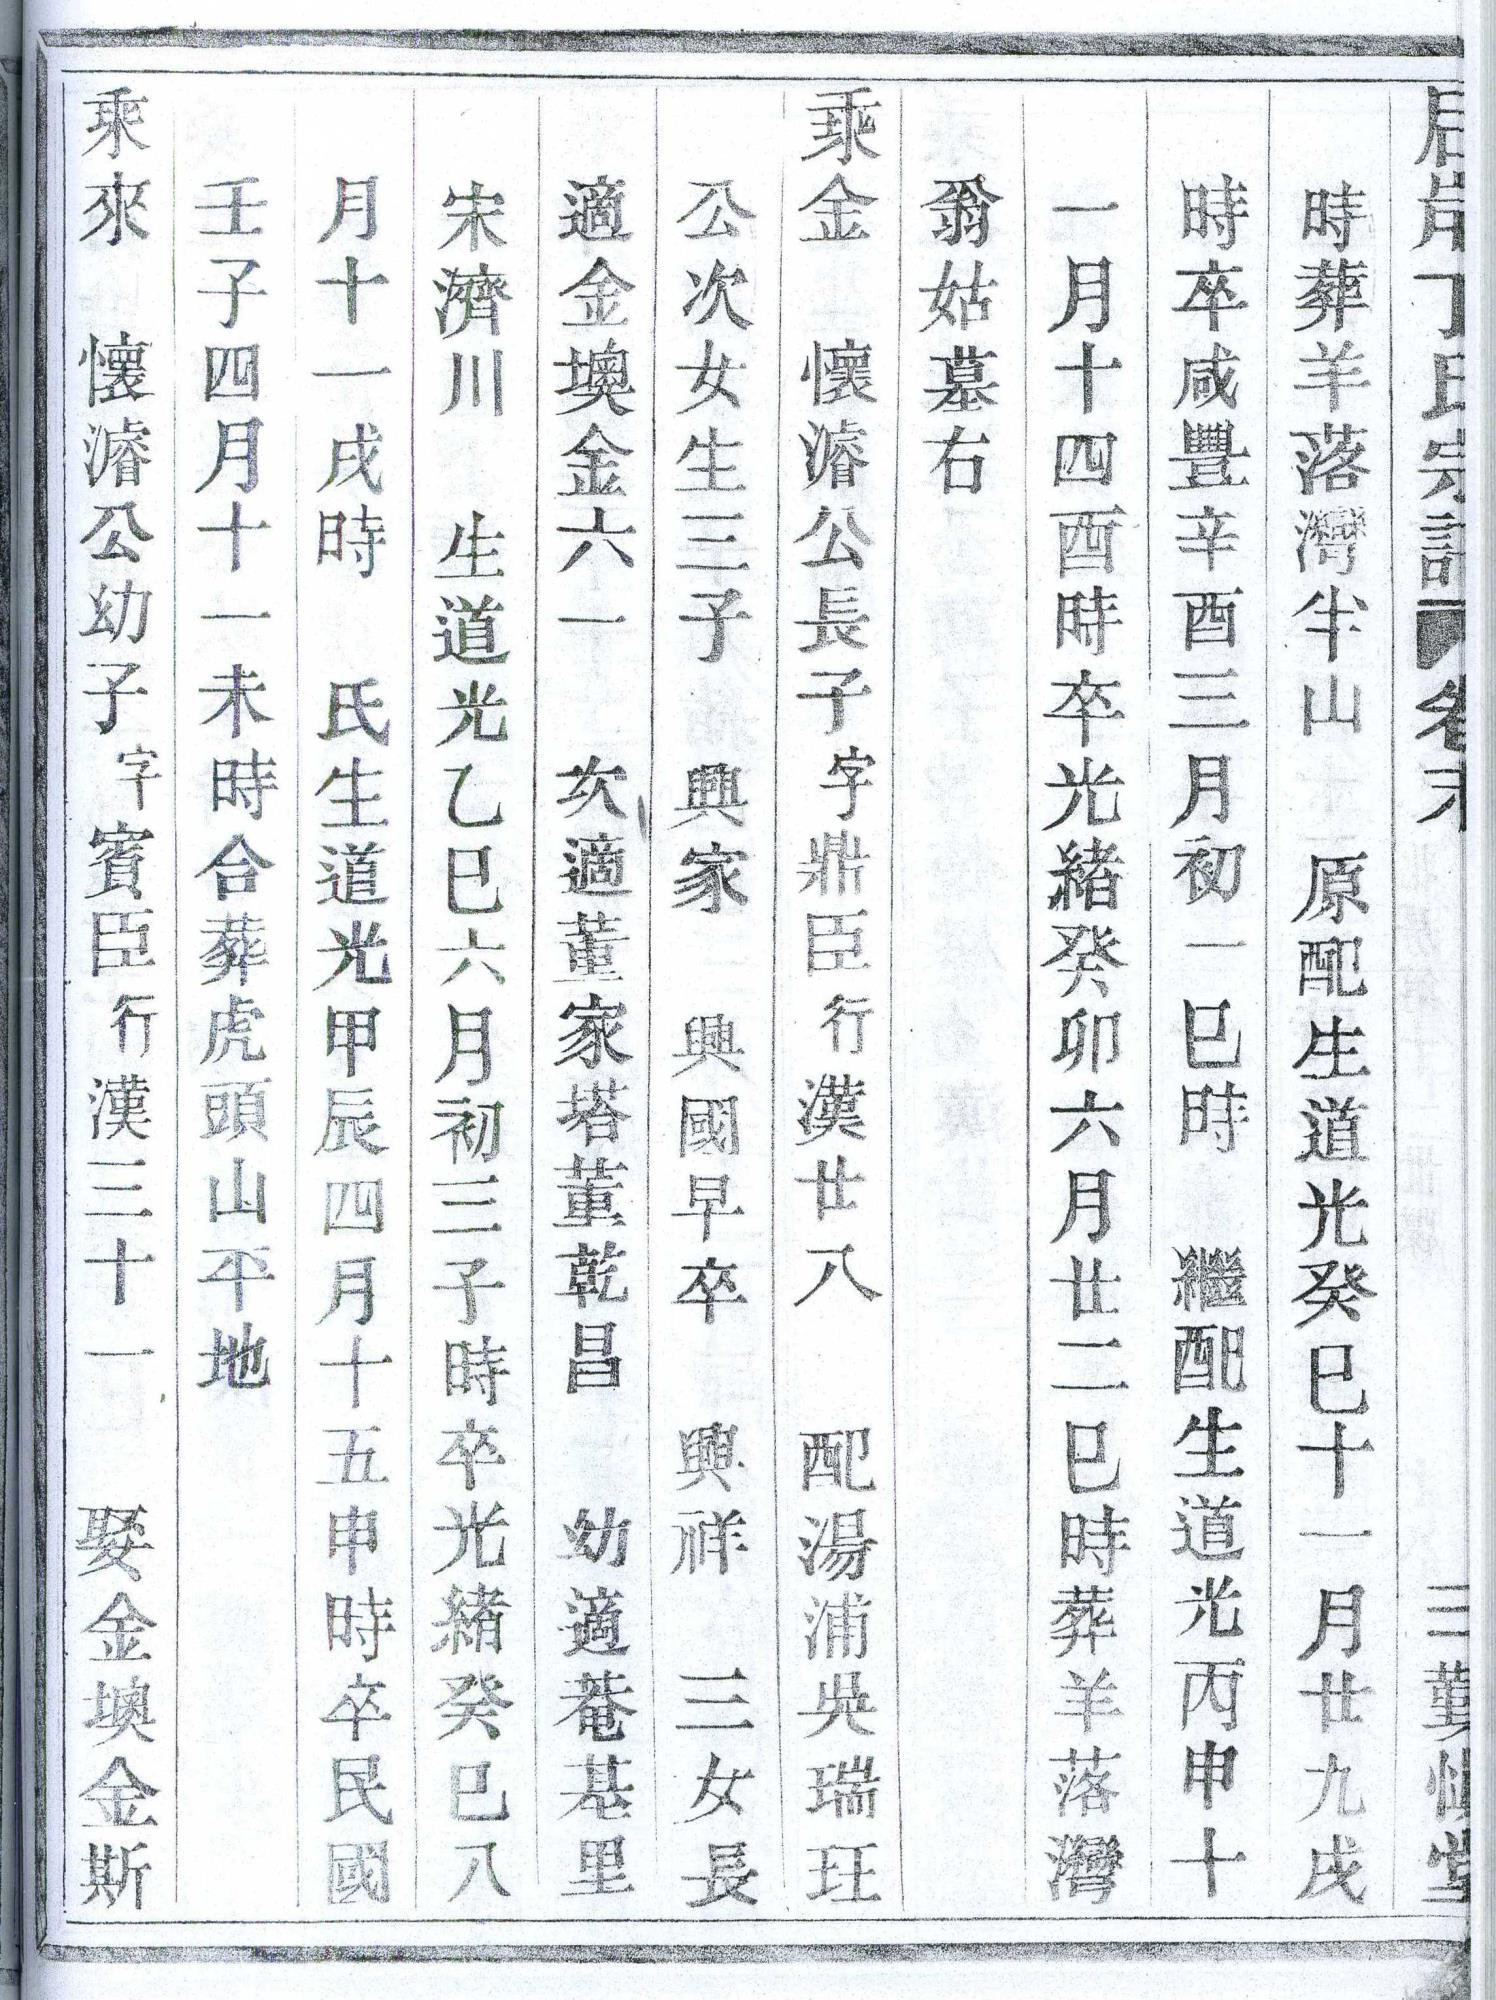 后岸丁氏宗譜 卷末 三 勤慎堂
時葬羊落灣半山 原配生道光癸巳十一月廿九戌
時卒咸豐辛酉三月初一巳時 繼配生道光丙申十
一月十四酉時卒光緒癸卯六月廿二巳時葬羊落灣
翁姑墓右
乘金 懷濬公長子字鼎臣行漢廿八 配湯浦吳瑞玨
公次女生三子 興家 興國早卒 興祥 三女長
適金墺金六一 次適董家塔董乾昌 幼適菴基里
宋濟川 生道光乙巳六月初三子時卒光緒癸巳八
月十一戌時 氏生道光甲辰四月十五申時卒民國
壬子四月十一未時合葬虎頭山平地
乘來 懷濬公幼子字賓臣行漢三十一 娶金墺金斯